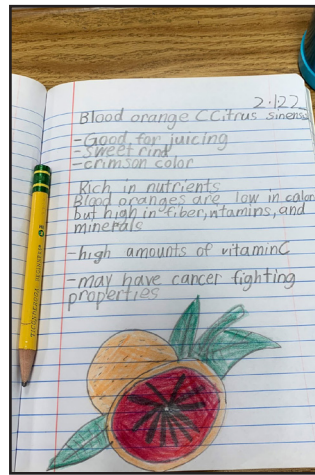 2·1·22
Blood orange CCitrus sinensis
-Good for juicing
-Sweet rind
-crimson color
Rich in nutrients
Blood oranges are low in calor
but high in fiber, vitamins, and
minerals
-high amounts of vitamin C
-may have cancer fighting
properties